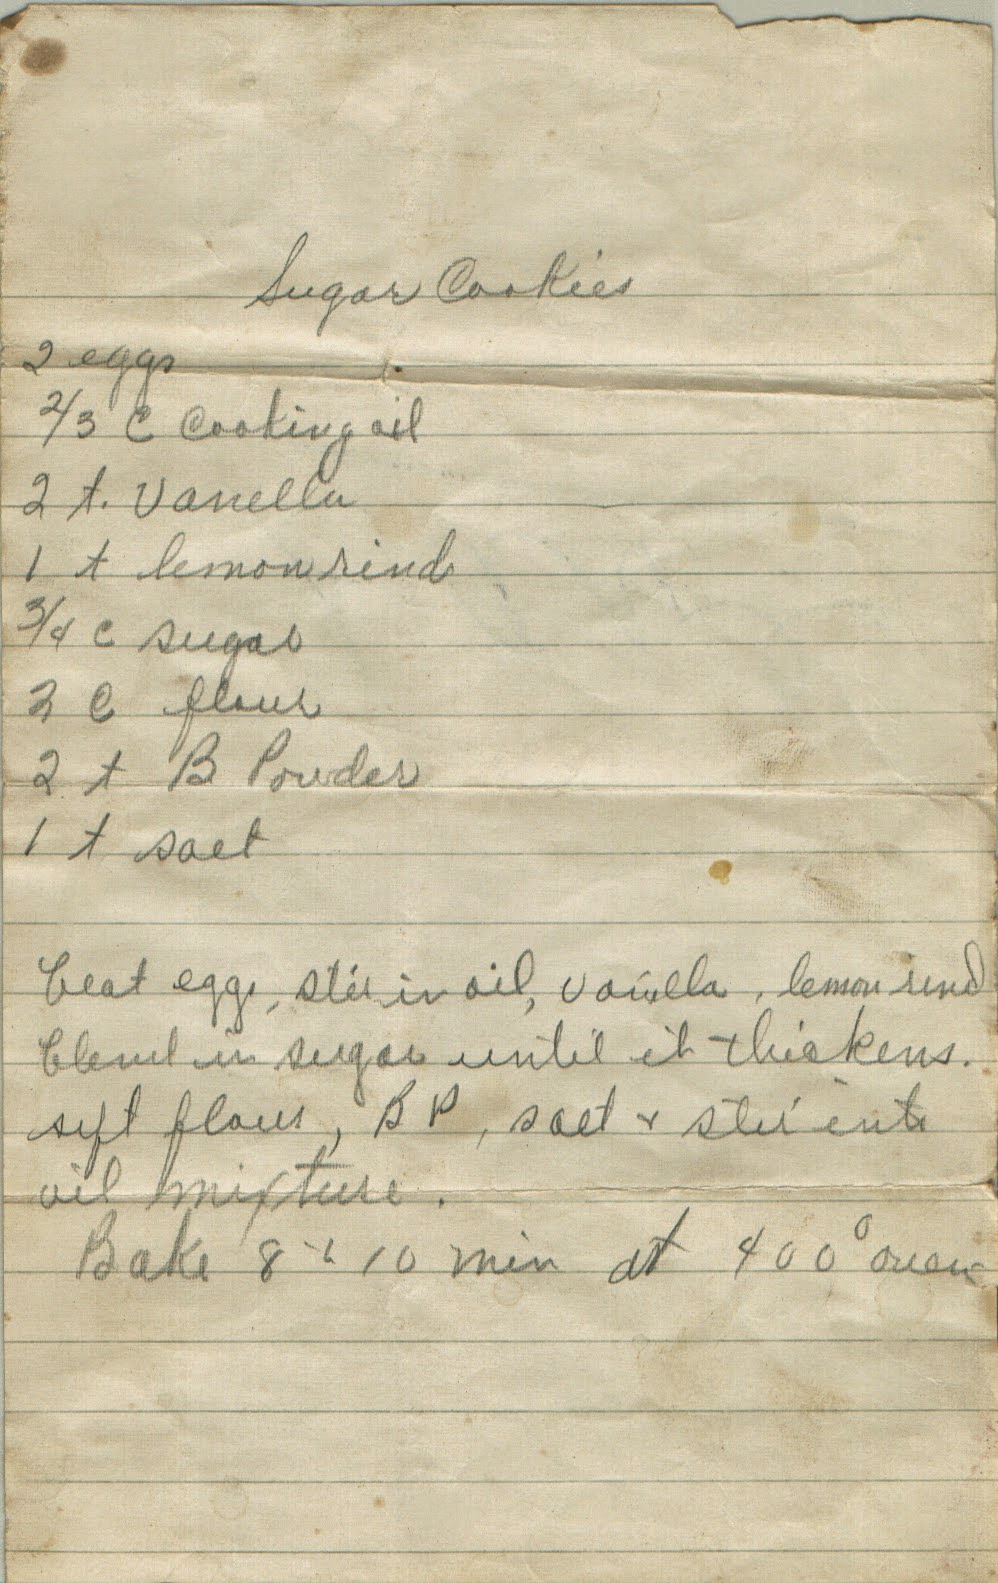 Sugar Cookies
2 eggs
2/3 C Cooking oil
2 t. Vanella
1 t lemon rind
3/4 c sugar
2 C flour
2 t B Powder
1 t salt
beat eggs, stir in oil, vanilla, lemon rind
blend in sugar until it thickens.
sift flour, BP, salt & stir into
oil mixture.
Bake 8 10 min at 400° oven